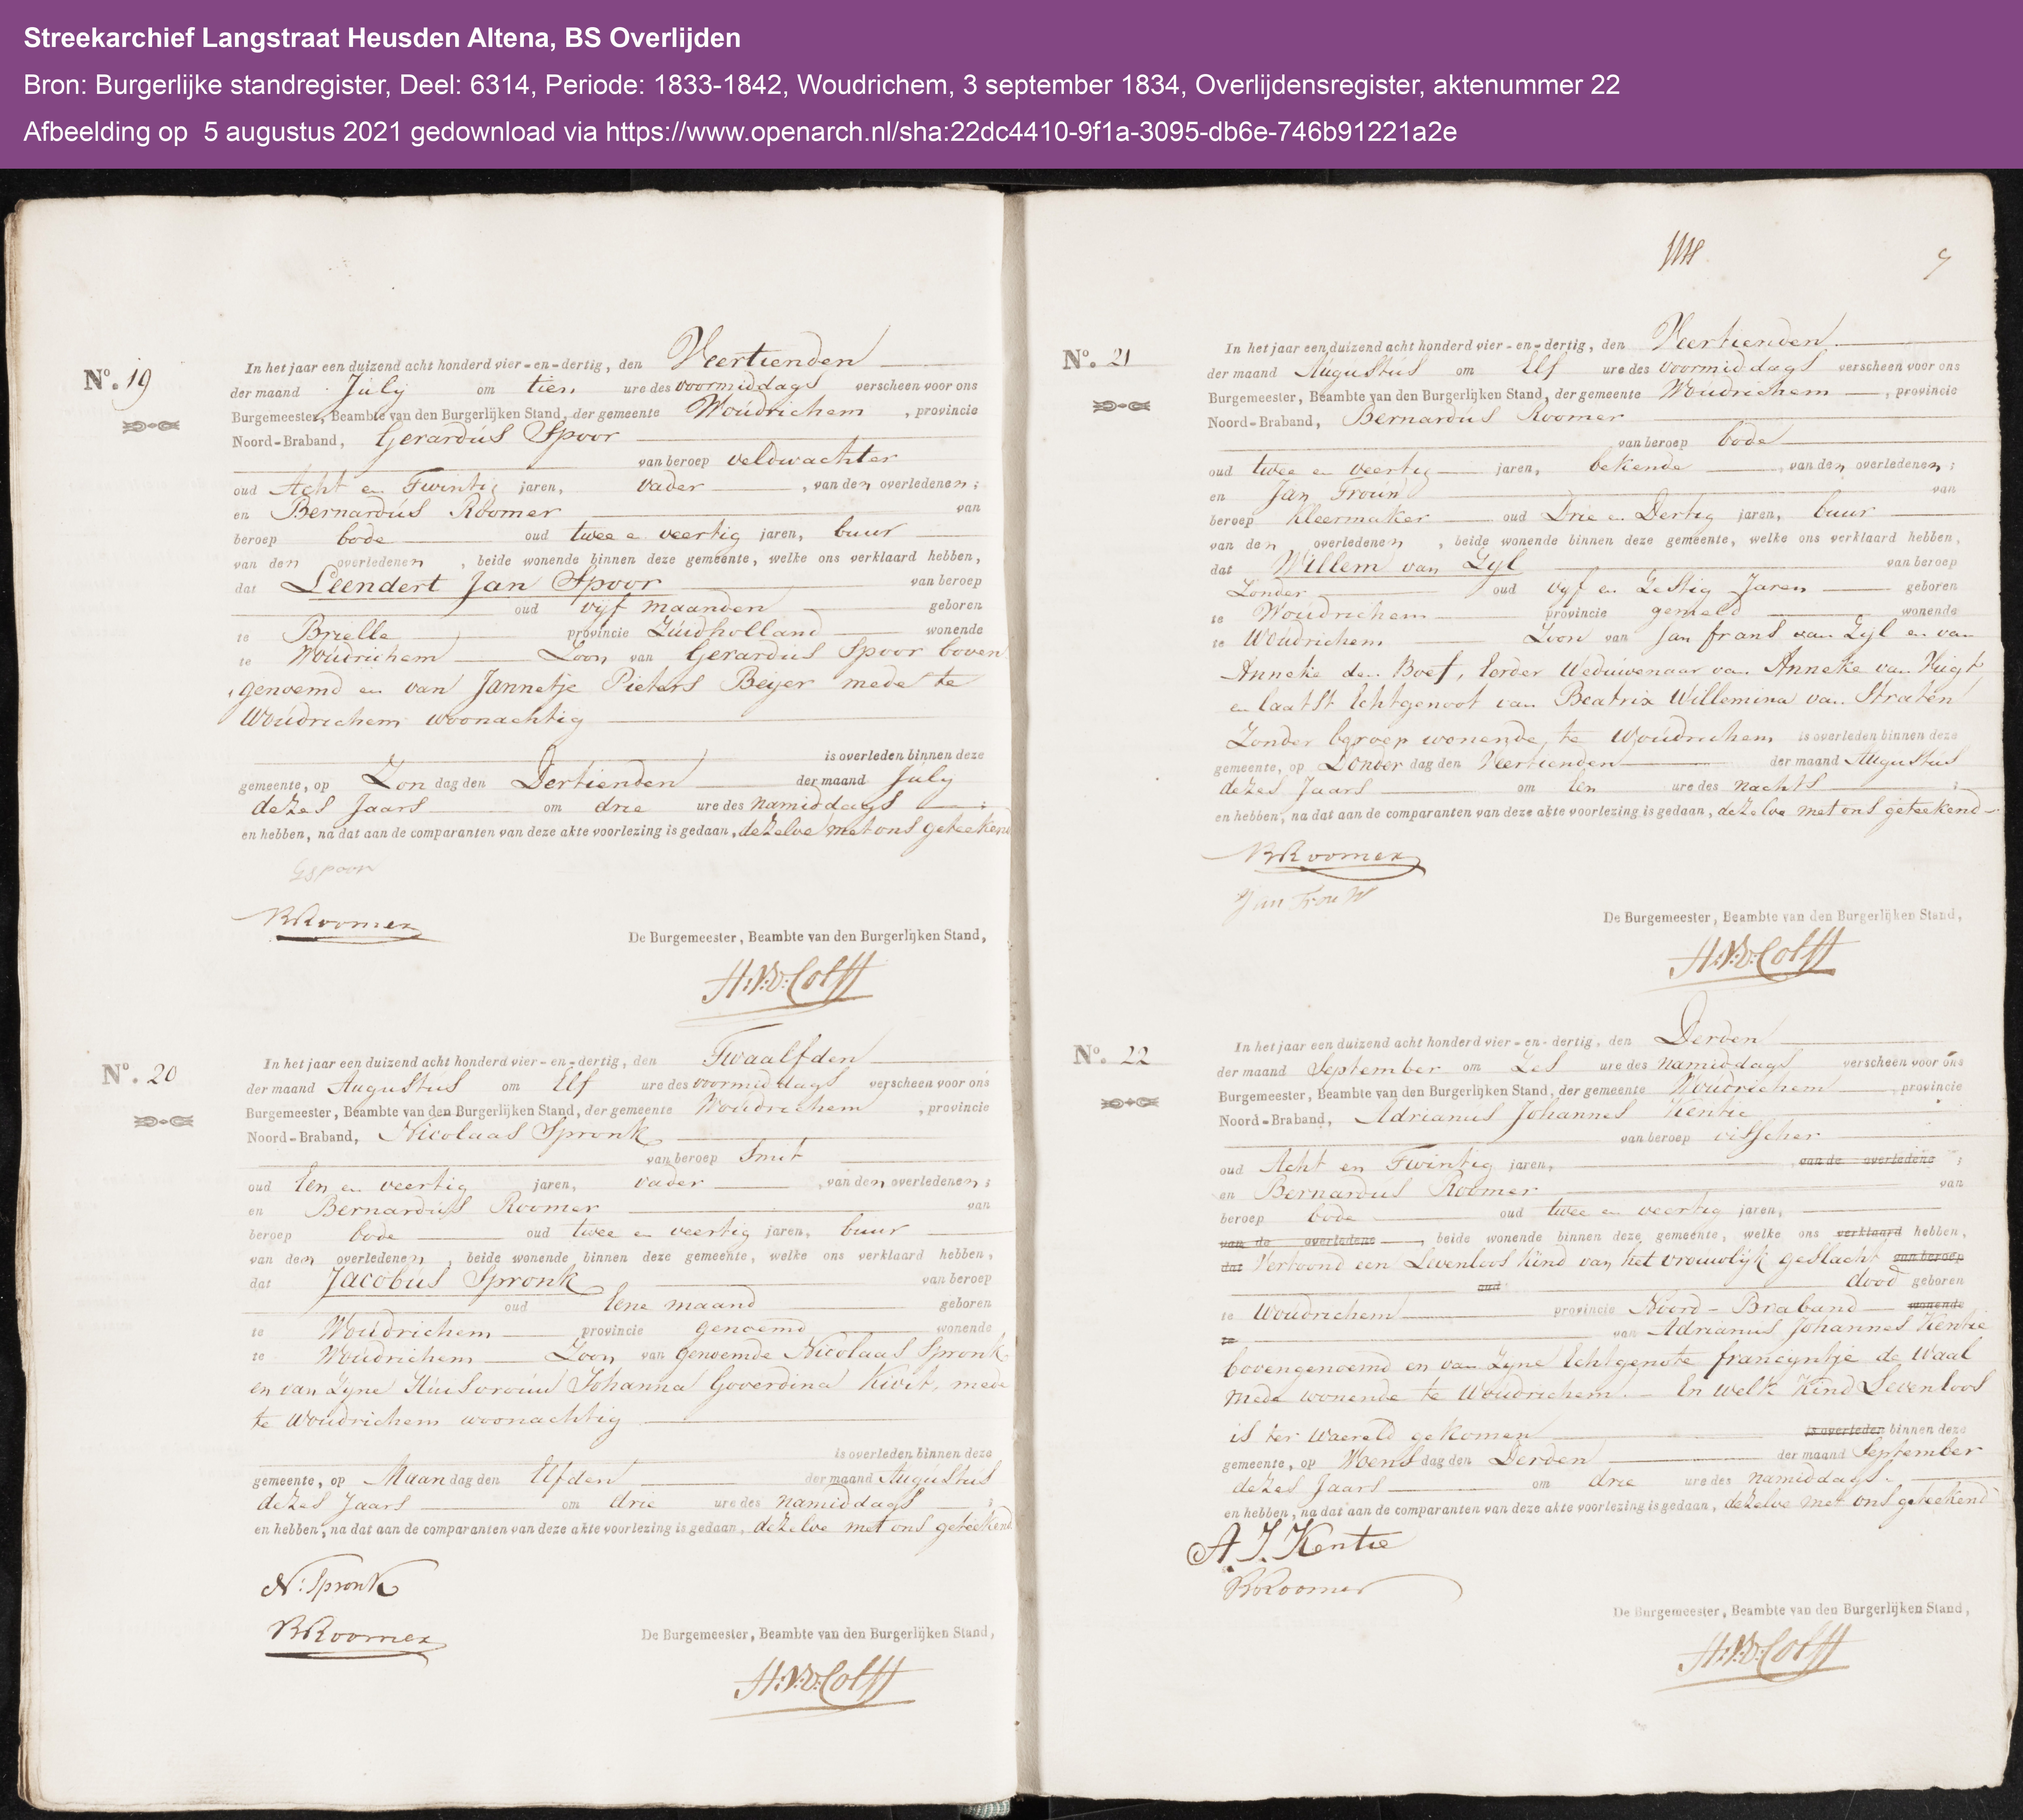 Streekarchief Langstraat Heusden Altena, BS Overlijden
Bron: Burgerlijke standregister, Deel: 6314, Periode: 1833-1842, Woudrichem, 3 september 1834, Overlijdensregister, aktenummer 22
Afbeelding op 5 augustus 2021 gedownload via https://www.openarch.nl/sha:22dc4410-9f1a-3095-db6e-746b91221a2e
No. 19
In het jaar een duizend acht honderd vier-en-dertig, den Veertienden
der maand July om tien ure des voormiddags verscheen voor ons
Burgemeester, Beambte van den Burgerlijken Stand, der gemeente Woudrichem, provincie
Noord-Braband, Gerardus Spoor
van beroep veldwachter
oud Acht en Twintig jaren, vader, van den overledenen;
en Bernardus Roomer van
beroep bode oud twee en veertig jaren, buur
van den overledenen, beide wonende binnen deze gemeente, welke ons verklaard hebben,
dat Leendert Jan Spoor van beroep
oud vyf maanden geboren
te Brielle provincie Zuidholland wonende
te Woudrichem Zoon van Gerardus Spoor boven
genoemd en van Jannetje Pieters Beijer mede te
Woudrichem woonachtig
is overleden binnen deze
gemeente, op Zon dag den Dertienden der maand July
dezes Jaars om drie ure des namiddags;
en hebben, na dat aan de comparanten van deze akte voorlezing is gedaan, dezelve met ons geteekend
G Spoor
B Roomer
De Burgemeester, Beambte van den Burgerlijken Stand,
No. 20
In het jaar een duizend acht honderd vier-en-dertig, den Twaalfden
der maand Augustus om Elf ure des voormiddags verscheen voor ons
Burgemeester, Beambte van den Burgerlijken Stand, der gemeente Woudrichem, provincie
Noord-Braband, Nicolaas Spronk
van beroep Smit
oud Een en veertig jaren, vader, van den overledenen;
en Bernardus Roomer van
beroep bode oud twee en veertig jaren, buur
van den overledenen, beide wonende binnen deze gemeente, welke ons verklaard hebben,
dat Jacobus Spronk van beroep
oud Eene maand geboren
te Woudrichem provincie genoemd wonende
te Woudrichem Zoon van genoemde Nicolaas Spronk
en van Zyne Huisvrouw Johanna Goverdina Kivit, mede
te Woudrichem woonachtig
is overleden binnen deze
gemeente, op Maan dag den Elfden der maand Augustus
dezes Jaars om drie ure des namiddags;
en hebben, na dat aan de comparanten van deze akte voorlezing is gedaan, dezelve met ons geteekend
N: Spronk
B Roomer
De Burgemeester, Beambte van den Burgerlijken Stand,
9
No. 21
In het jaar een duizend acht honderd vier-en-dertig, den Veertienden
der maand Augustus om Elf ure des voormiddags verscheen voor ons
Burgemeester, Beambte van den Burgerlijken Stand, der gemeente Woudrichem, provincie
Noord-Braband, Bernardus Roomer
van beroep bode
oud twee en veertig jaren, bekende, van den overledenen;
en Jan Trouw van
beroep Kleermaker oud Drie en Dertig jaren, buur
van den overledenen, beide wonende binnen deze gemeente, welke ons verklaard hebben,
dat Willem van Zyl van beroep
Zonder oud vyf en Zestig Jaren geboren
te Woudrichem provincie gemeld wonende
te Woudrichem Zoon van Jan frans van Zyl en van
Anneke den Boef, Eerder Weduwenaar van Anneke van Vugt
en laatst Echtgenoot van Beatrix Willemina van Straten
Zonder beroep wonende te Woudrichem is overleden binnen deze
gemeente, op Donder dag den Veertienden der maand Augustus
dezes Jaars om Een ure des nachts;
en hebben, na dat aan de comparanten van deze akte voorlezing is gedaan, dezelve met ons geteekend
B Roomer
Jan Trouw
De Burgemeester, Beambte van den Burgerlijken Stand,
No. 22
In het jaar een duizend acht honderd vier-en-dertig, den Derden
der maand September om Zes ure des namiddags verscheen voor ons
Burgemeester, Beambte van den Burgerlijken Stand, der gemeente Woudrichem, provincie
Noord-Braband, Adrianus Johannes Kentie
van beroep visscher
oud Acht en Twintig jaren, van de overledene;
en Bernardus Roomer van
beroep bode oud twee en veertig jaren,
van de overledene, beide wonende binnen deze gemeente, welke ons verklaard hebben,
dat Vertoond een Levenloos Kind van het vrouwlyk geslacht van beroep
oud dood geboren
te Woudrichem provincie Noord-Braband wonende
te van Adrianus Johannes Kentie
bovengenoemd en van Zyne Echtgenote francyntje de Waal
mede wonende te Woudrichem. - En welk Kind Levenloos
is ter Waereld gekomen is overleden binnen deze
gemeente, op Woens dag den Derden der maand September
dezes Jaars om drie ure des namiddags.
en hebben, na dat aan de comparanten van deze akte voorlezing is gedaan, dezelve met ons geteekend
A. J. Kentie
B Roomer
De Burgemeester, Beambte van den Burgerlijken Stand,